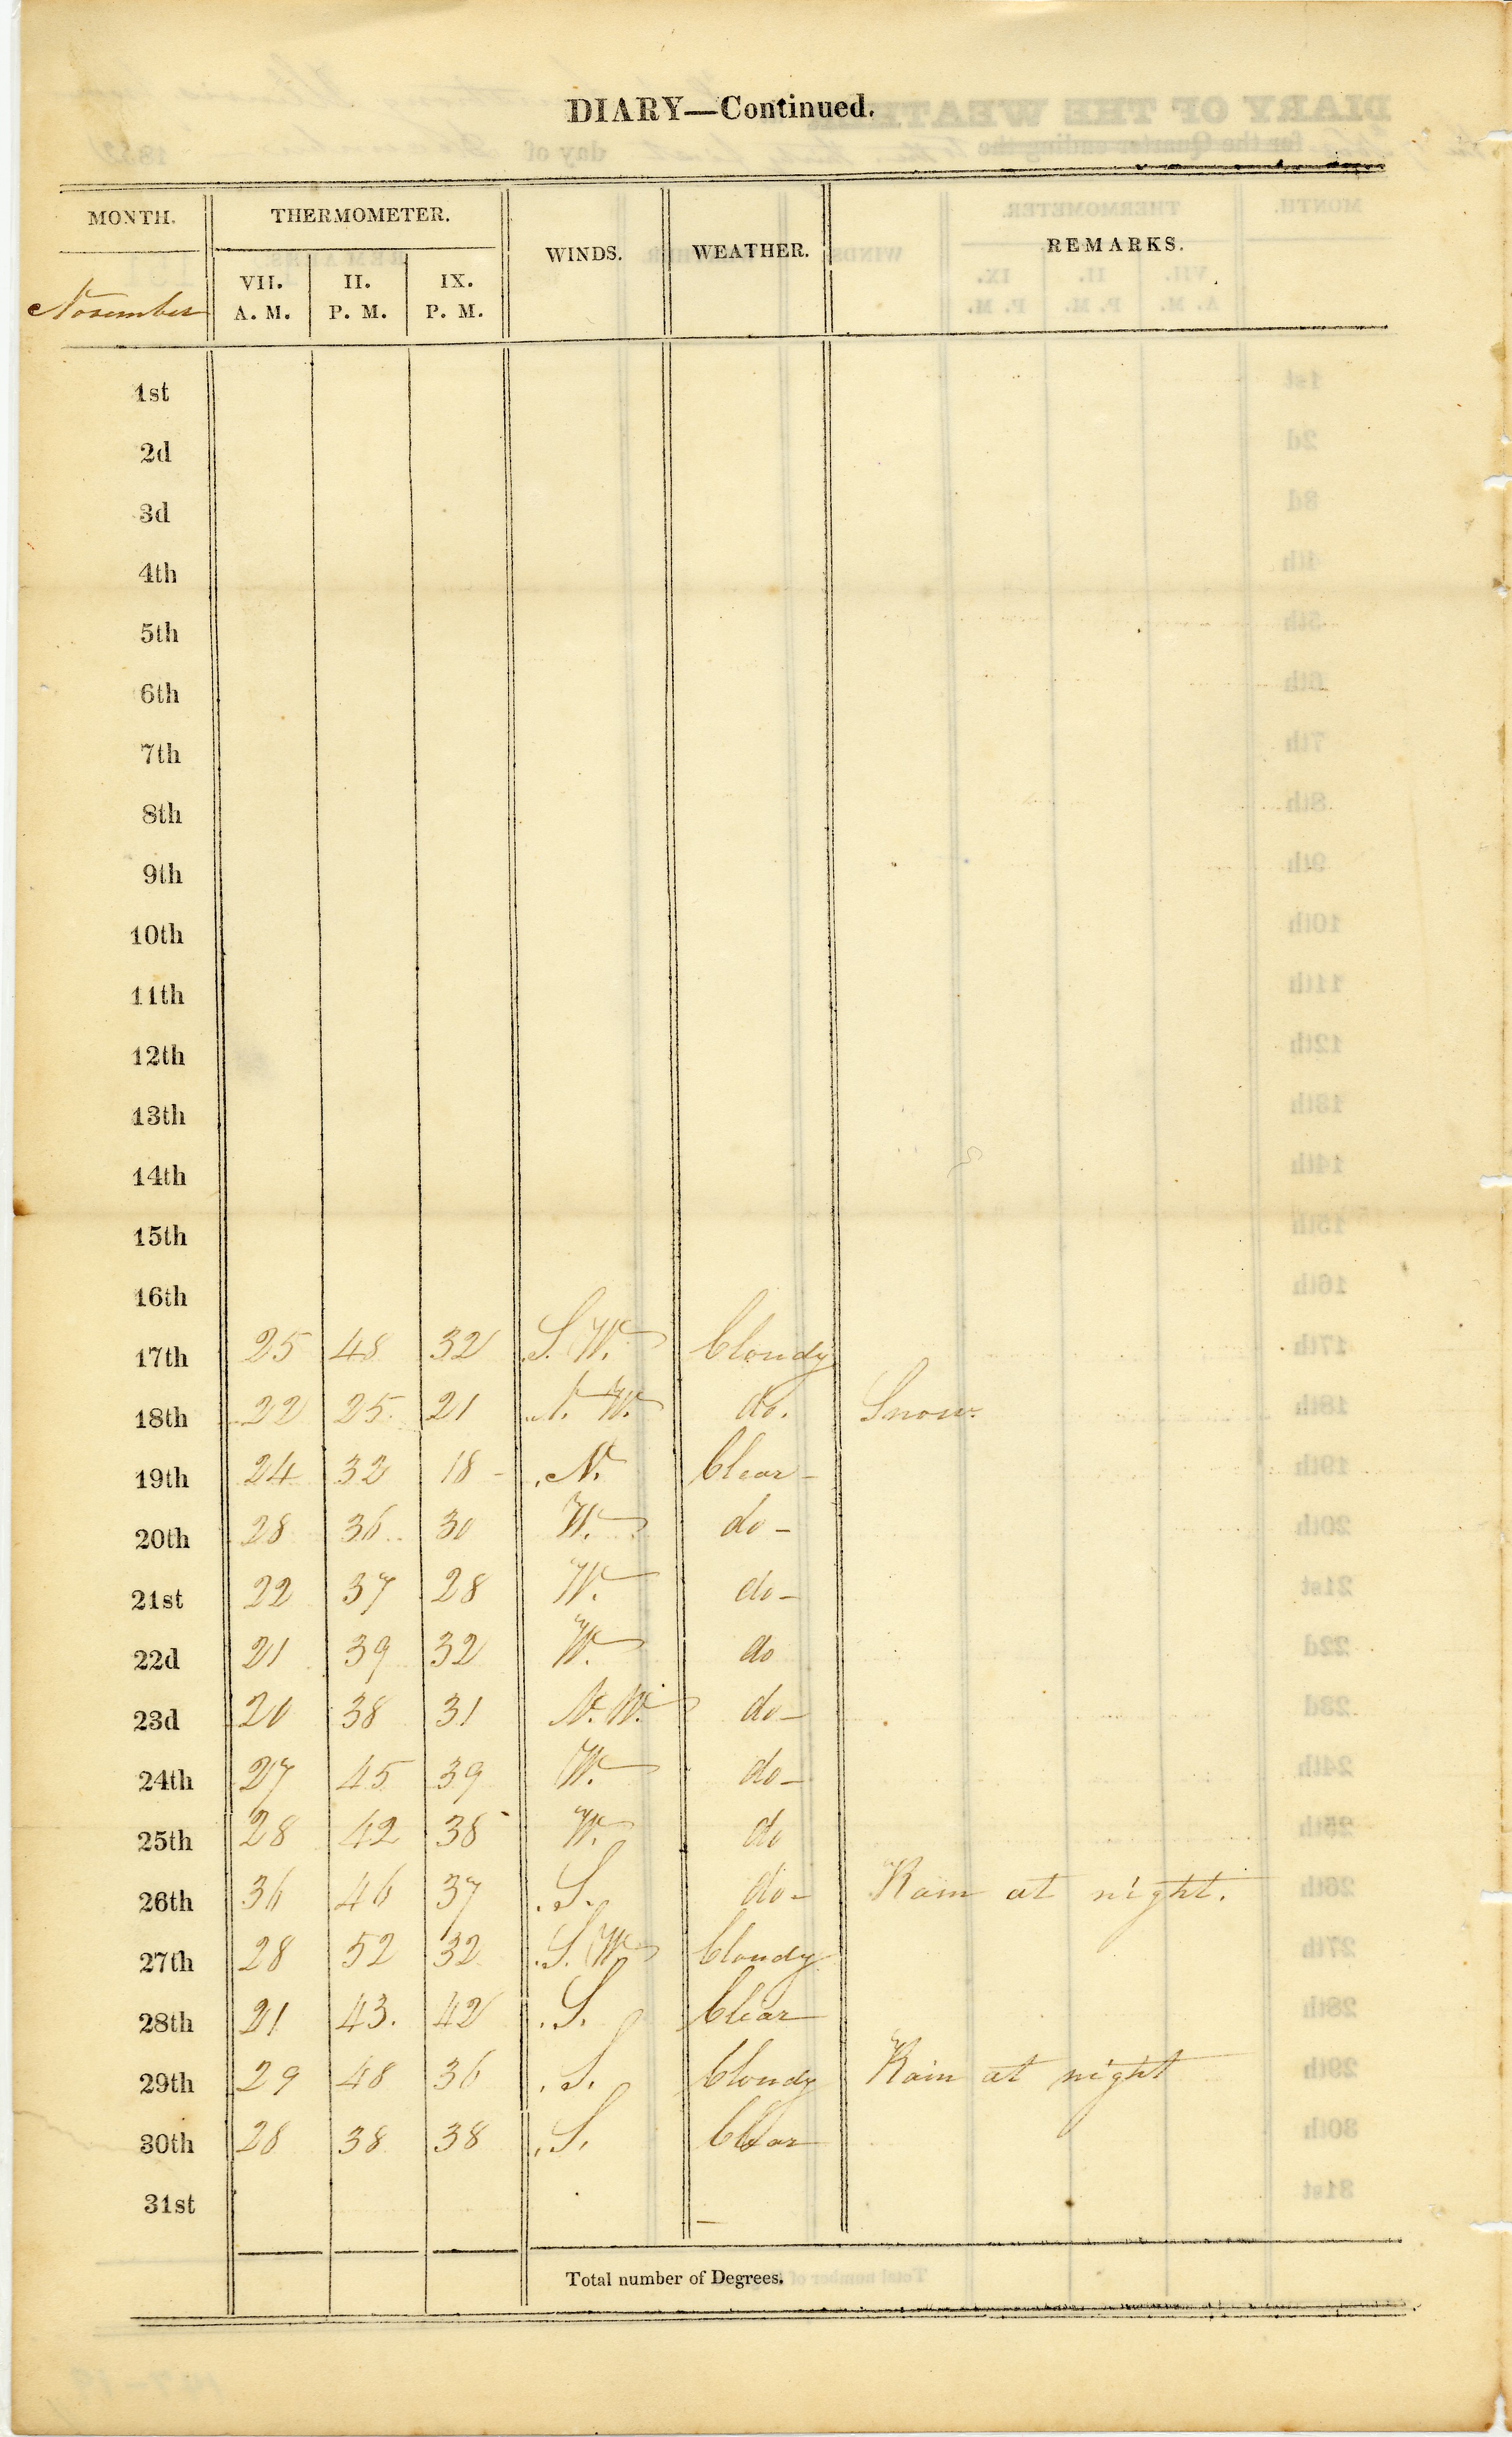 DIARY—Continued.
MONTH. THERMOMETER. WINDS. WEATHER. REMARKS.
November VII. A. M. II. P. M. IX. P. M.
1st
2d
3d
4th
5th
6th
7th
8th
9th
10th
11th
12th
13th
14th
15th
16th
17th 25 48 32 S. W. Cloudy
18th 22 25 21 W. do. Snow.
19th 24 32 18 - N. Clear -
20th 28 36 30 W. do -
21st 22 37 28 W. do -
22d 21 39 32 W. do
23d 20 38 31 N. W. do -
24th 27 45 39 W. do -
25th 28 42 38 W. do
26th 36 46 37 S. do - Rain at night.
27th 28 52 32 S. W. Cloudy
28th 21 43. 42 S. Clear
29th 29 48 36 S. Cloudy Rain at night
30th 28 38 38 S. Clear
31st
Total number of Degrees.